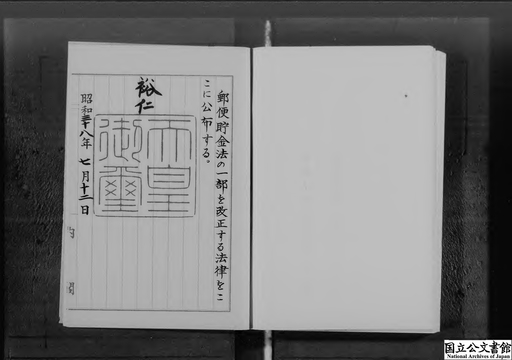 郵便貯金法の一部を改正する法律をこ
こに公布する。
裕仁
天皇
御璽
昭和三十八年 七月十二日
内閣
国立公文書館
National Archives of Japan